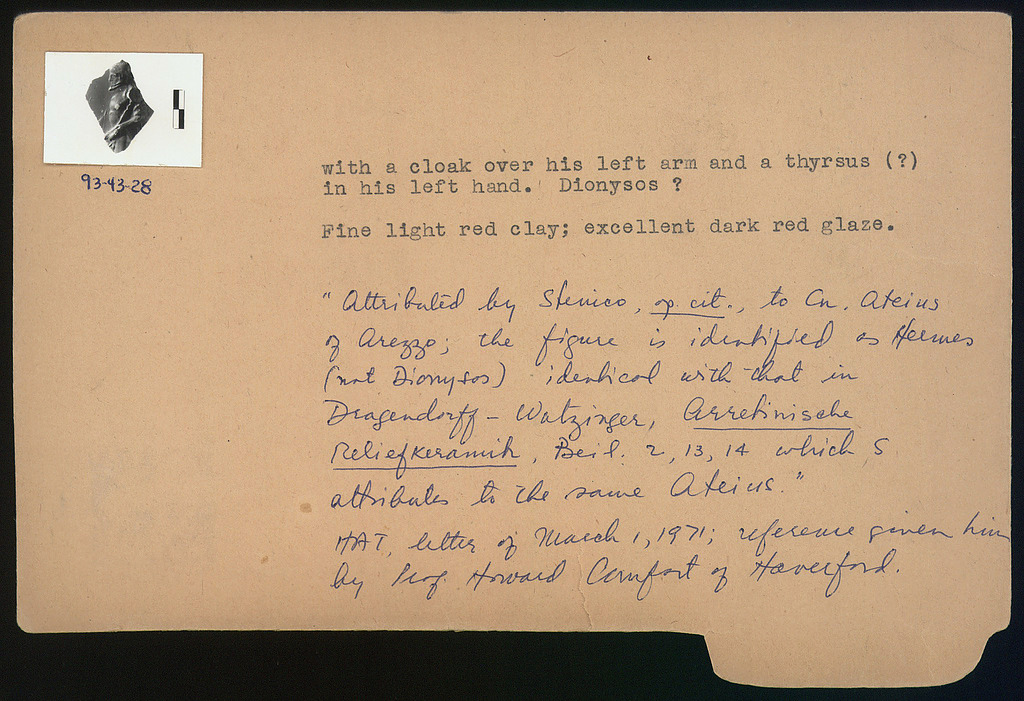 93-43-28
with a cloak over his left arm and a thyrsus (?)
in his left hand. Dionysos ?
Fine light red clay; excellent dark red glaze.
"Attributed by Stenico, op. cit., to Cn. Ateius
of Arezzo; the figure is identified as Hermes
(not Dionysos) identical with that in
Dragendorff - Watzinger, Arretinische
Reliefkeramik, Beil. 2, 13, 14 which S
attributes to the same Ateius."
HAT, letter of March 1, 1971; reference given him
by Prof. Howard Comfort of Haverford.